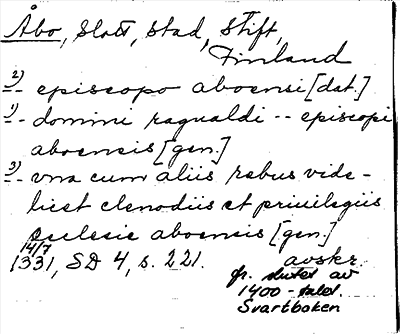 Åbo, Slott, Stad, Stift,
Finland
2) - episcopo aboensi [dat.]
1) - domini ragualdi -- episcopi
aboensis [gen.]
3) - vna cum aliis rebus vide-
licet clenodiis et priuilegiis
ecclesie aboensis [gen.]
14/7
1331, SD 4, s. 221. avskr.
fr. slutet av
1400-talet.
Svartboken